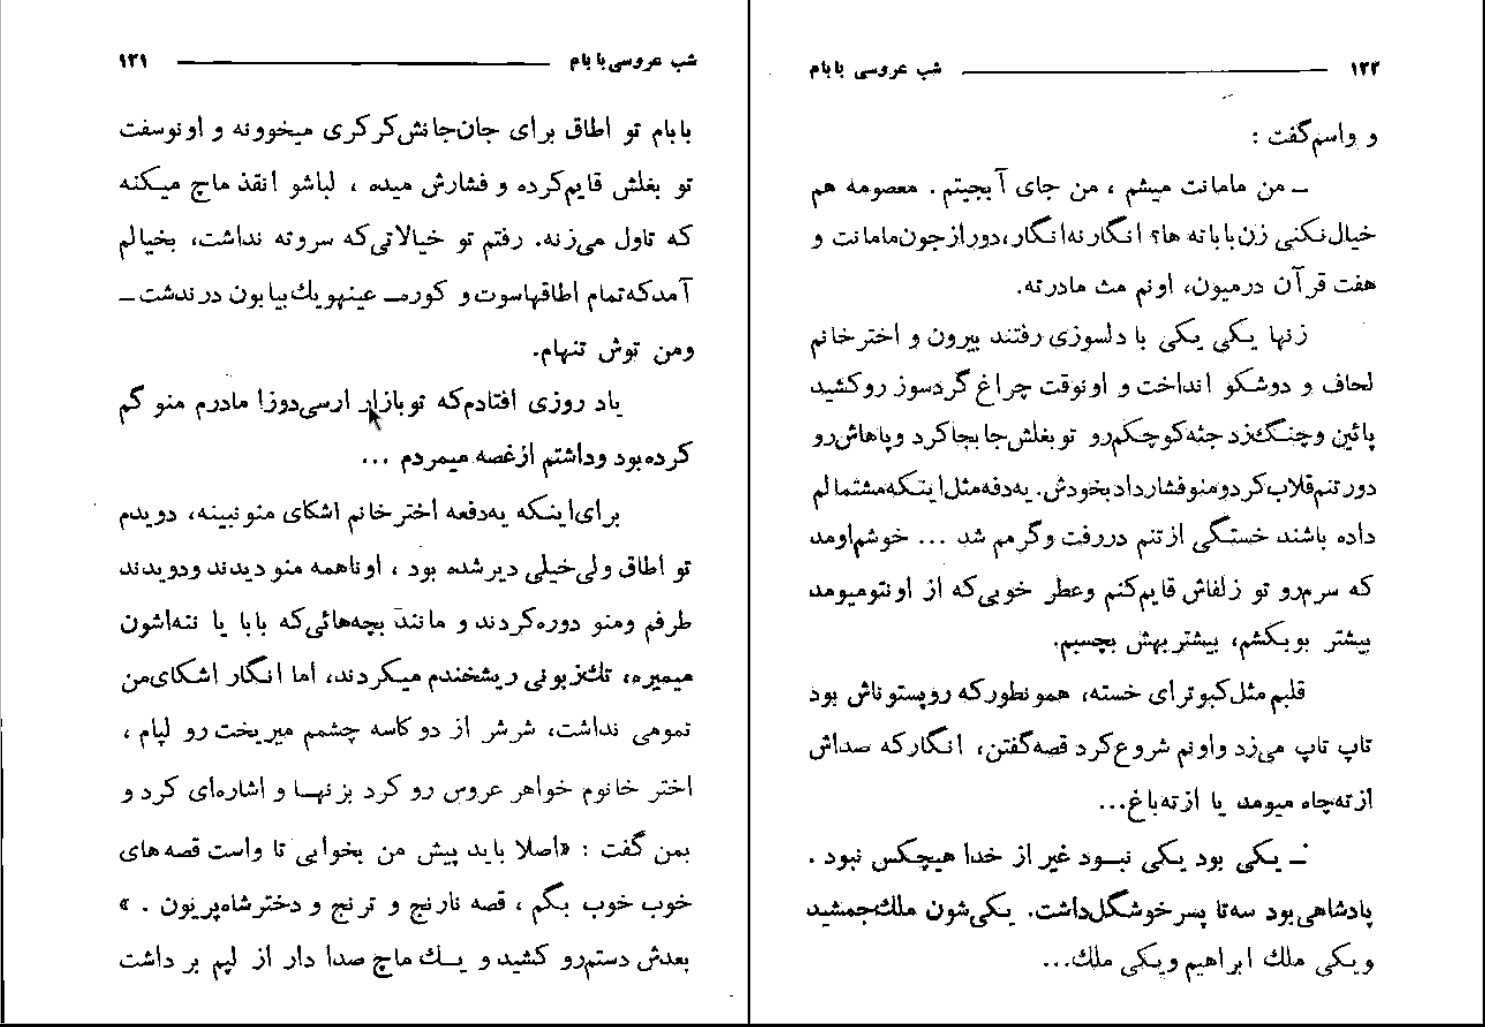 شب عروسی بابام ۱۳۱
بابام تو اطاق برای جان‌جانش کرکری میخوونه و اونوسفت
تو بغلش قایم‌کرده و فشارش میده ، لباشو انقذ ماچ میکنه
که تاول می‌زنه. رفتم تو خیالاتی‌که سروته نداشت، بخیالم
آمدکه‌تمام اطاقهاسوت و کورهـ عینهویك‌بیابون درندشت ـ
ومن توش تنهام.
یاد روزی افتادم‌که توبازار ارسی‌دوزا مادرم منو گم
کرده‌بود وداشتم ازغصه میمردم ...
برای‌اینکه یه‌دفعه اخترخانم اشکای منو نبینه، دویدم
تو اطاق ولی‌خیلی دیرشده بود ، اوناهمه منو دیدند ودویدند
طرفم ومنو دوره‌کردند و مانند بچه‌هائی‌که بابا یا ننه‌اشون
میمیره، تك‌زبونی ریشخندم میکردند، اما انگار اشکای‌من
تمومی نداشت، شرشر از دوکاسه چشمم میریخت رو لپام ،
اختر خانوم خواهر عروس رو کرد بزنهـا و اشاره‌ای کرد و
بمن گفت : «اصلا باید پیش من بخوابی تا واست قصه‌های
خوب خوب بگم ، قصه نارنج و ترنج و دخترشاه‌پریون . »
بعدش دستم‌رو کشید و یـك ماچ صدا دار از لپم بر داشت
۱۳۲ شب عروسی بابام
و واسم‌گفت :
ـ من مامانت میشم ، من جای آبجیتم . معصومه هم
خیال‌نکنی زن‌باباته ها؟ انگارنه‌انگار،دورازجون‌مامانت و
هفت قرآن درمیون، اونم مث مادرته.
زنها یکی یکی با دلسوزی رفتند بیرون و اخترخانم
لحاف و دوشکو انداخت و اونوقت چراغ گردسوز روکشید
پائین وچنگ‌زد جثه‌کوچکم‌رو توبغلش‌جابجاکرد وپاهاش‌رو
دورتنم‌قلاب‌کردومنوفشارداد بخودش. یه‌دفه‌مثل‌اینکه‌مشتمالم
داده باشند خستگی ازتنم دررفت وگرمم شد ... خوشم‌اومد
که سرم‌رو تو زلفاش قایم‌کنم وعطر خوبی‌که از اونتومیومد
بیشتر بوبکشم، بیشتربهش بچسبم.
قلبم مثل‌کبوترای خسته، همونطورکه روپستوناش بود
تاپ تاپ می‌زد واونم شروع‌کرد قصه‌گفتن، انگارکه صداش
ازته‌چاه میومد یا ازته‌باغ...
ـ یکی بود یکی نبـود غیر از خدا هیچکس نبود .
پادشاهی‌بود سه‌تا پسرخوشگل‌داشت. یکی‌شون ملك‌جمشید
ویکی ملك ابراهیم ویکی ملك...